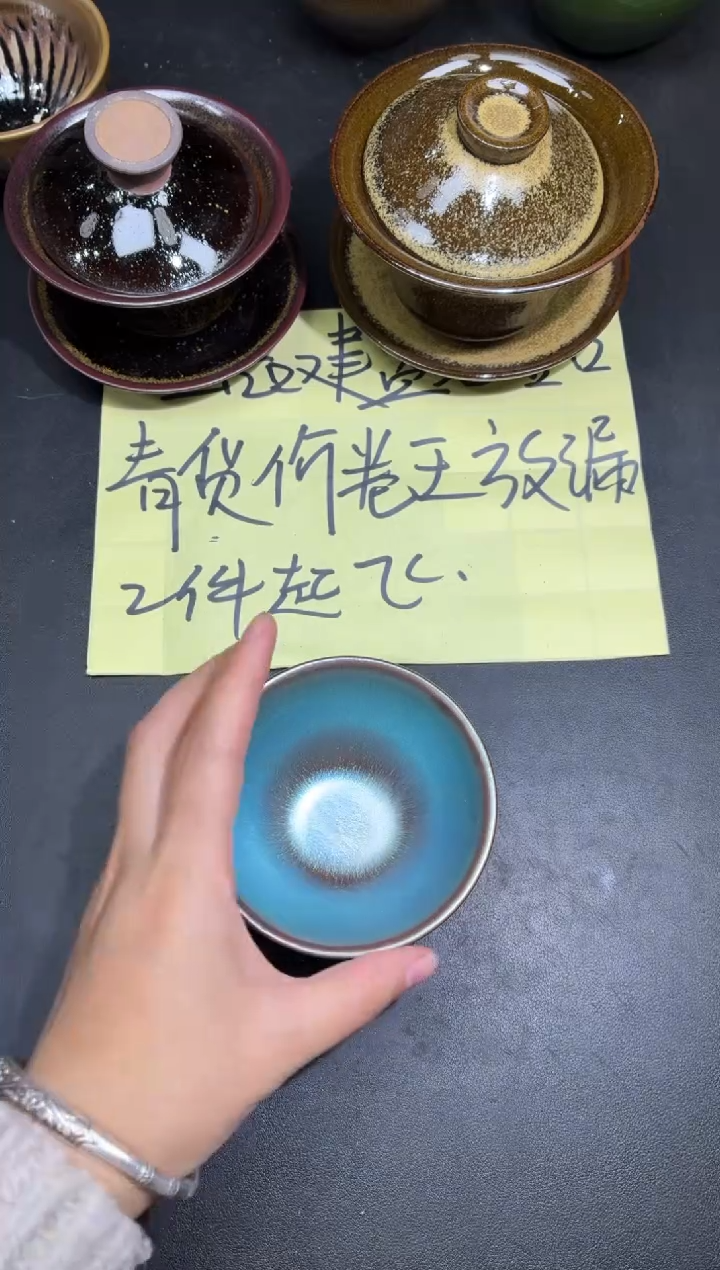 建盏
青货价卷王放漏
2件起飞.